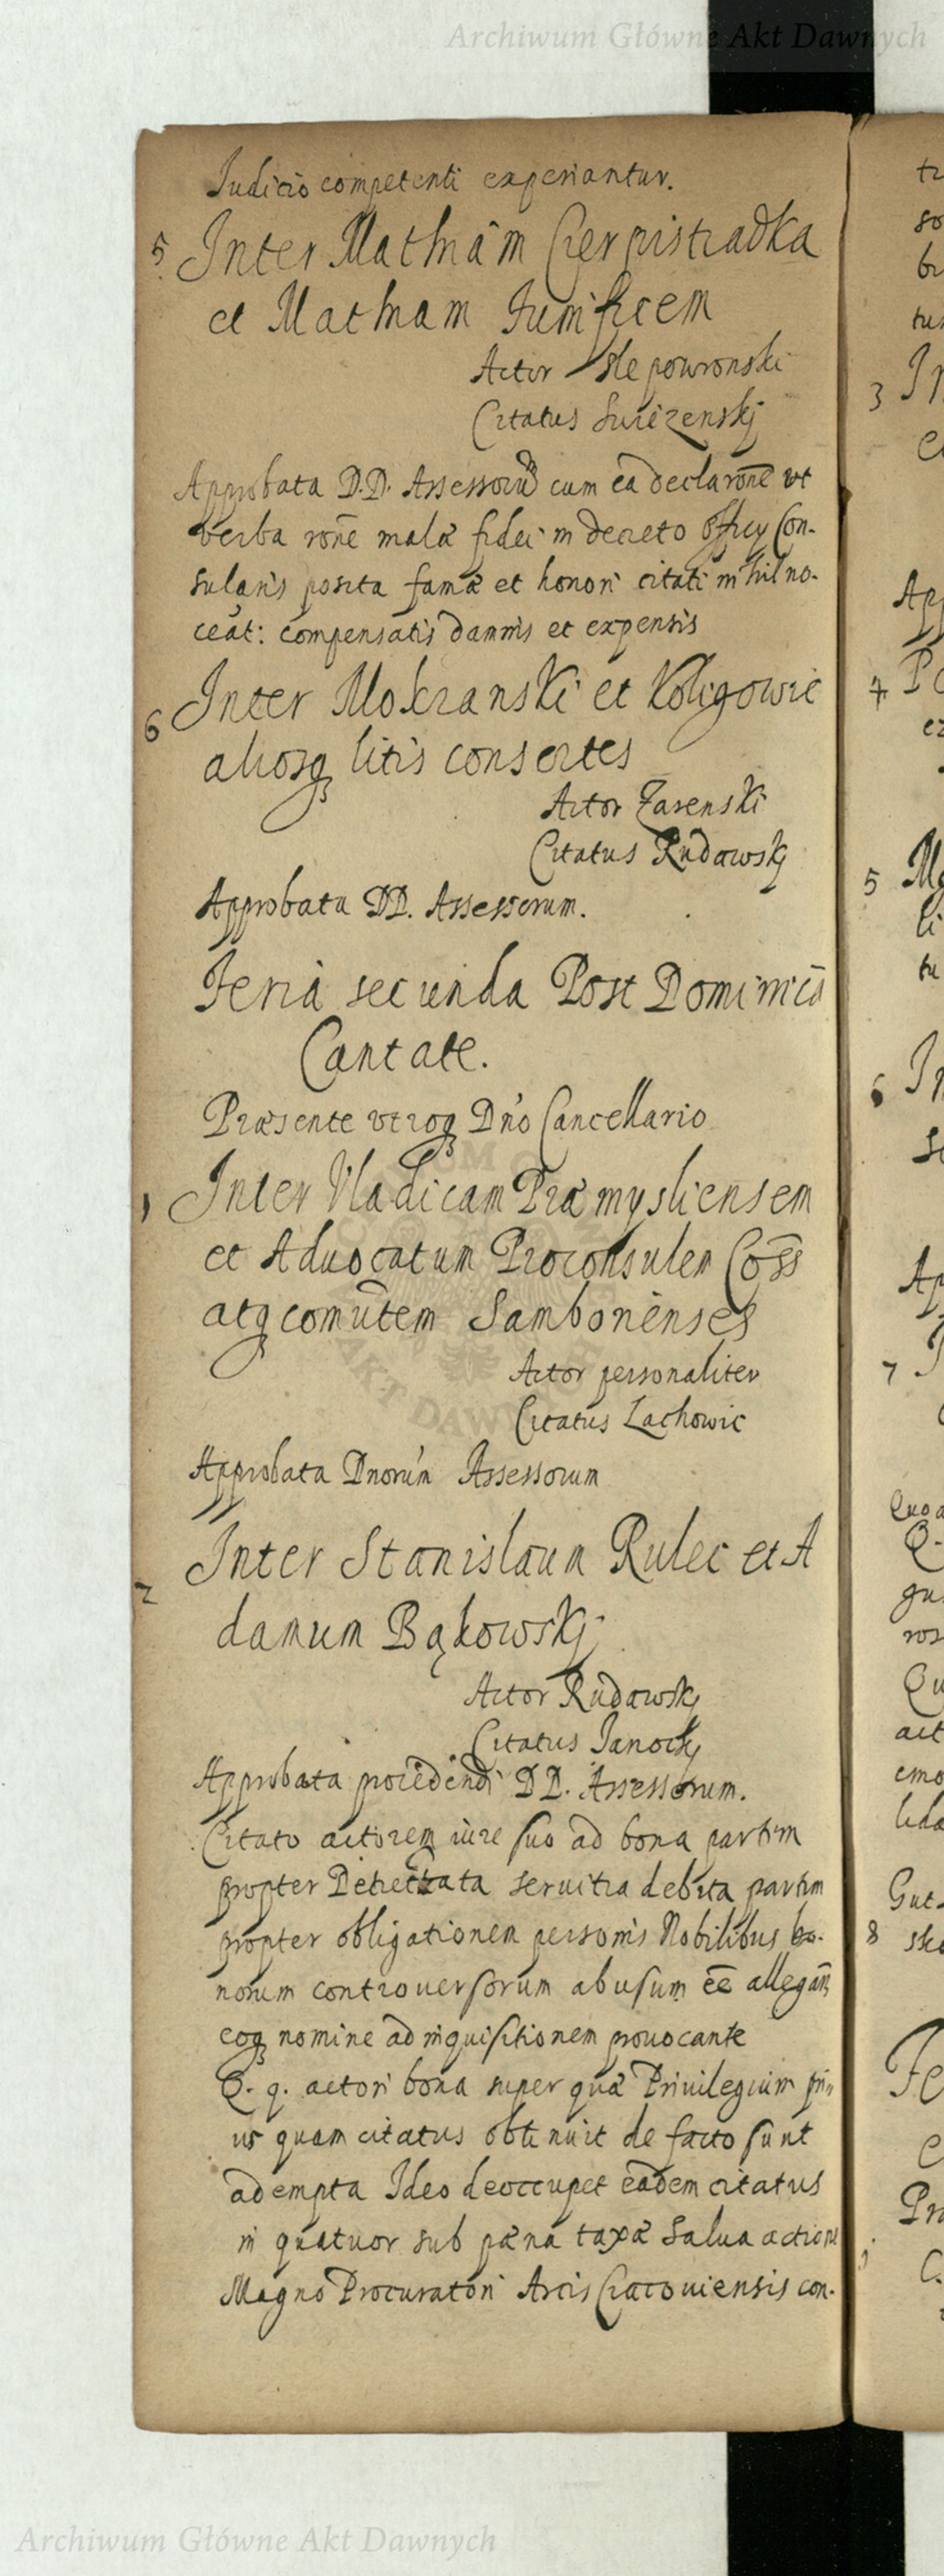 Archiwum Główne Akt Dawnych
Iudicio competenti experiantur.
5 Inter Mathiam Cierpistradka
et Mathiam Funificem
Actor Slepowronski
Citatus Swiezenskj
Approbata D.D. Assessorū cum ea declarōne vt
verba rōne malæ fidei in decreto officij Con-
sularis posita famæ et honori citati nihil no-
ceat: compensatis damnis et expensis
6 Inter Mokranski et Koligowic
aliosq litis consortes
Actor Zarenski
Citatus Rudawskj
Approbata DD. Assessorum.
Feria secunda Post Dominicā
Cantate.
Præsente vtroq Dno Cancellario
1 Inter Vladicam Præmysliensem
et Aduocatum Proconsulem Coss
atq comūtem Samborienses
Actor personaliter
Citatus Lachowic
Approbata Dnorum Assessorum
2 Inter Stanislaum Rulec et A
damum Bąkowskj
Actor Rudawskj
Citatus Janockj
Approbata procedendi DD. Assessorum.
Citato actorem iure suo ad bona partim
propter Detrectata seruitia debita partim
propter obligationem personis Nobilibus bo-
norum controuersorum abusum eē allegan
eoq nomine ad inquisitionem prouocante
Q. q. actori bona super quæ Priuilegium pri-
us quam citatus obtinuit de facto sunt
adempta Ideo deoccupet eadem citatus
in quatuor sub pæna taxæ Salua actione
Magno Procuratori Arcis Cracouiensis con-
Archiwum Główne Akt Dawnych